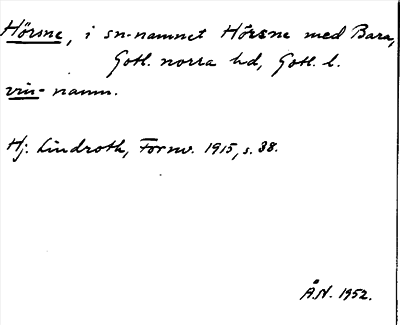 Hörsne, i sn-namnet Hörsne med Bara,
Gotl. norra hd, Gotl. l.
vin-namn.
Hj. Lindroth, Fornv. 1915, s. 38.
Å.N. 1952.